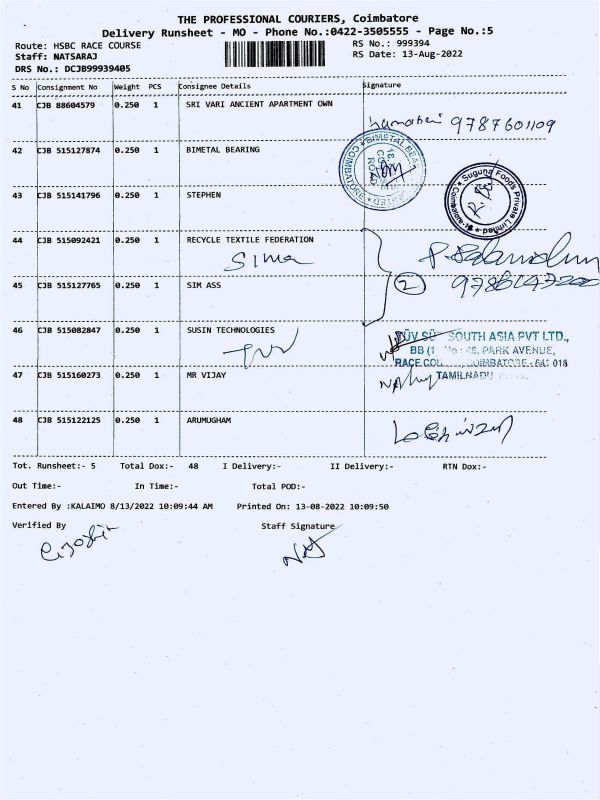 THE PROFESSIONAL COURIERS, Coimbatore
Delivery Runsheet - MO - Phone No.:0422-3505555 - Page No.:5
Route: HSBC RACE COURSE
RS No.: 999394
Staff: NATSARAJ
RS Date: 13-Aug-2022
DRS No.: DCJB99939405
S No Consignment No Weight PCS Consignee Details Signature
41 CJB 88604579 0.250 1 SRI VARI ANCIENT APARTMENT OWN
9787601109
42 CJB 515127874 0.250 1 BIMETAL BEARING
BIMETAL BEA
COIMBATORE
ROAD
43 CJB 515141796 0.250 1 STEPHEN
Suguna Foods Private Limited
44 CJB 515092421 0.250 1 RECYCLE TEXTILE FEDERATION
Sima
45 CJB 515127765 0.250 1 SIM ASS
2
46 CJB 515082847 0.250 1 SUSIN TECHNOLOGIES
SOUTH ASIA PVT LTD.,
PARK AVENUE,
RACE COIMBATORE - 641 018
TAMILNADU
47 CJB 515160273 0.250 1 MR VIJAY
48 CJB 515122125 0.250 1 ARUMUGHAM
Tot. Runsheet:- 5 Total Dox:- 48 I Delivery:- II Delivery:- RTN Dox:-
Out Time:- In Time:- Total POD:-
Entered By :KALAIMO 8/13/2022 10:09:44 AM Printed On: 13-08-2022 10:09:50
Verified By Staff Signature